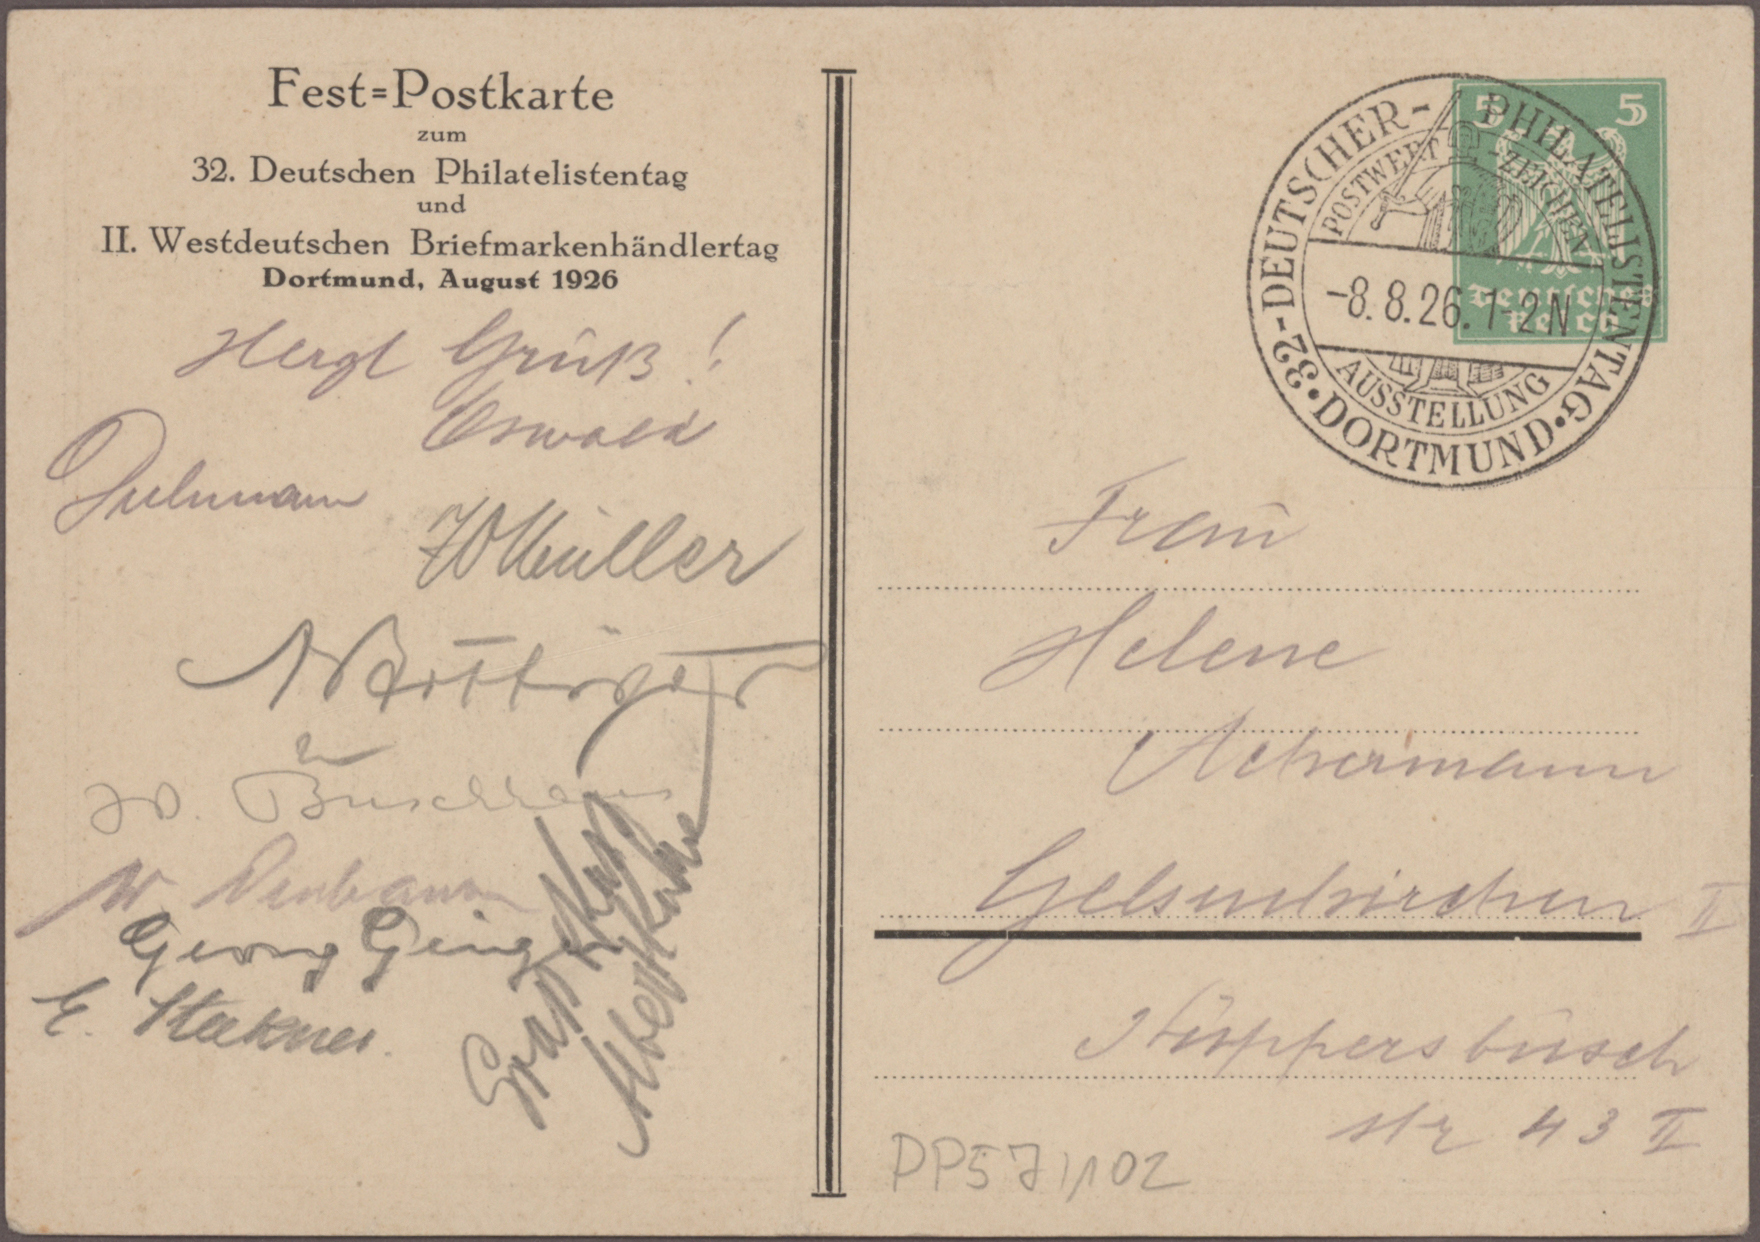 Fest=Postkarte
zum
32. Deutschen Philatelistentag
und
II. Westdeutschen Briefmarkenhändlertag
Dortmund, August 1926
Herzl Gruß!
Oswald
W Müller
W. Buschhaus
Georg
E.
Albert
32-DEUTSCHER-PHILATELISTENTAG
POSTWERT-ZEICHEN
-8.8.26.1-2N
AUSSTELLUNG
•DORTMUND•
5 5
Deutsches
Reich
Frau
Helene
Ackermann
Gelsenkirchen II
Küppersbusch
str 43 II
PP57/102